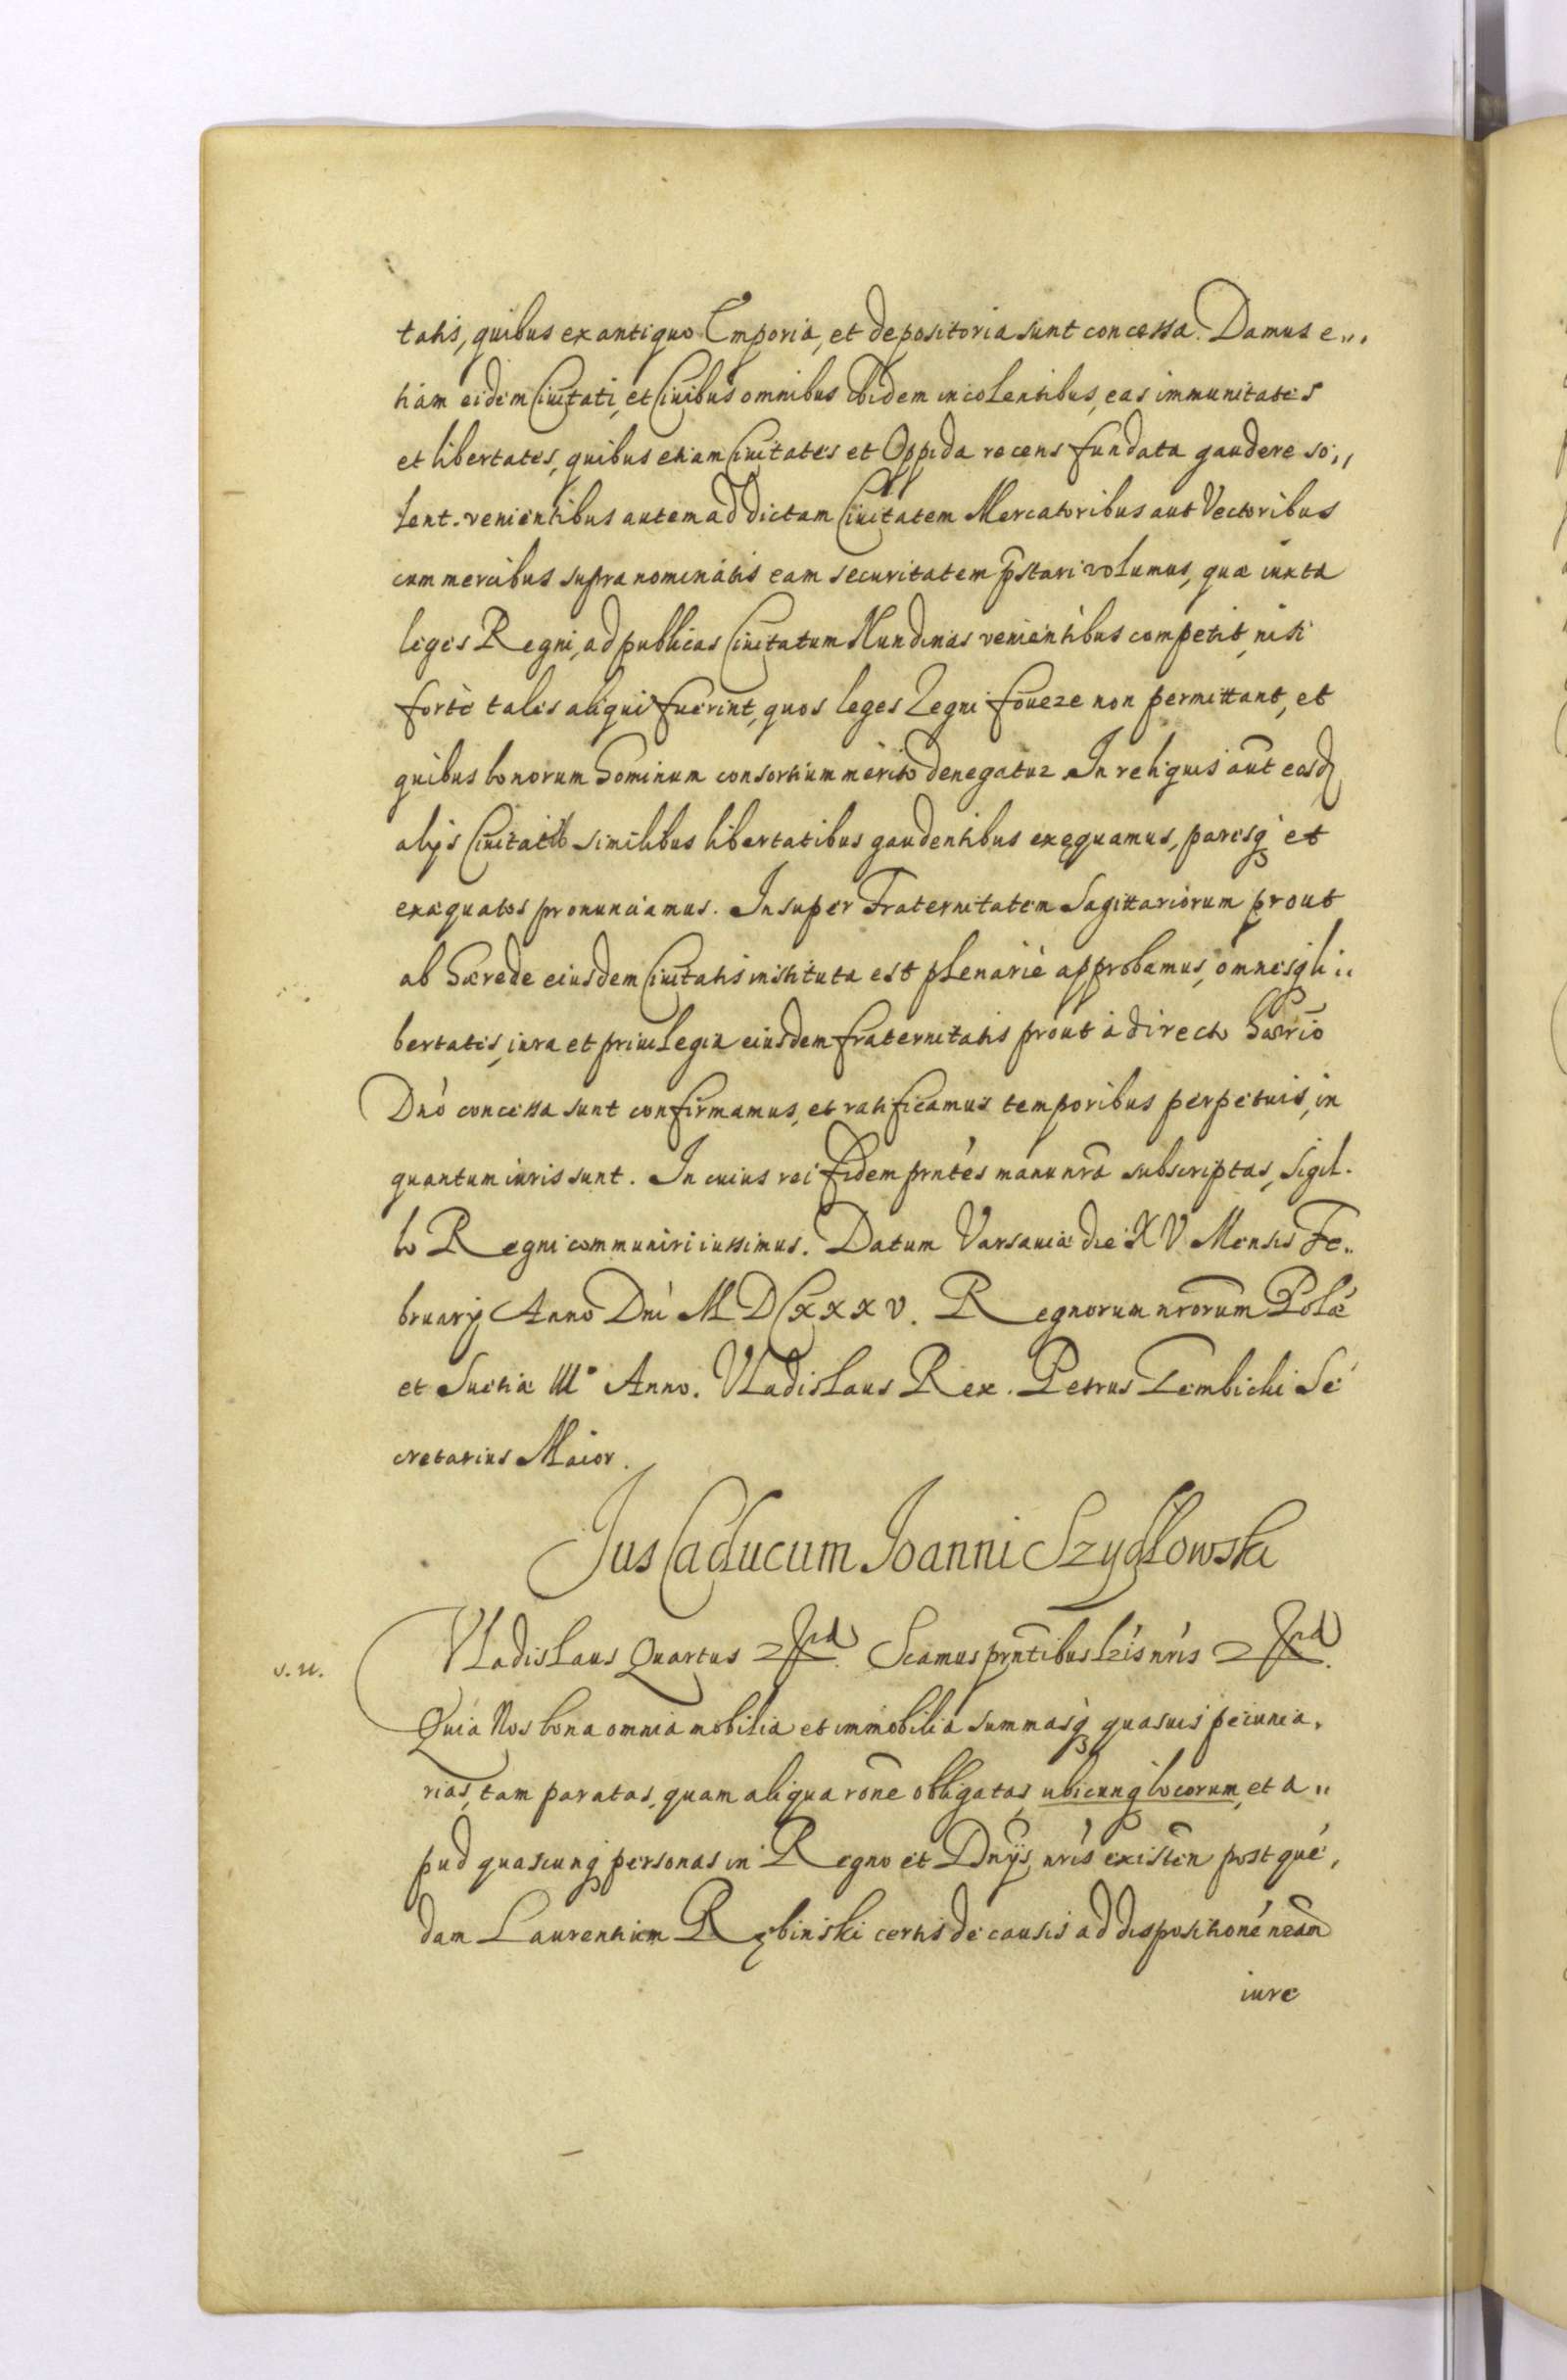 tatis, quibus ex antiquo Emporia, et depositoria sunt concessa. Damus e„
tiam eidem Ciuitati, et Ciuibus omnibus ibidem incolentibus, eas immunitates
et libertates, quibus etiam Ciuitates et Oppida recens fundata gaudere so„
lent. venientibus autem ad dictam Ciuitatem Mercatoribus aut Vectoribus
cum mercibus supranominatis eam securitatem pstari volumus, quæ iuxta
leges Regni, ad publicas Ciuitatum Nundinas venientibus competit, nisi
fortè tales aliqui fuerint, quos leges Regni fouere non permittant, et
quibus bonorum hominum consortium merito denegatur In reliquis aut easd
alijs Ciuitatib similibus libertatibus gaudentibus exęquamus, paresq et
exæquatos pronunciamus. Insuper Fraternitatem Sagittariorum prout
ab hærede eiusdem Ciuitatis instituta est plenariè approbamus, omnesq li„
bertates, iura et priuilegia eiusdem fraternitatis prout à directo hærio
Dnò concessa sunt confirmamus, et ratificamus temporibus perpetuis, in
quantum iuris sunt. In cuius rei fidem prntes manu nrã subscriptas, Sigil.
lo Regni communiri iussimus. Datum Varsauiæ die XV Mensis Fe„
bruarij Anno Dni MDCXXXV. Regnorum nrorum Polæ
et Suetiæ III° Anno. Vladislaus Rex. Petrus Gembicki Se
cretarius Maior.
Jus Caducum Joanni Szydłowski
v. u.
Vladislaus Quartus Scamus prntibus lris nris
Quia Nos bona omnia mobilia et immobilia summasq quasuis pecunia,
rias, tam paratas, quam aliqua rone obligatas, ubicunq locorum, et a„
pud quascunq personas in Regno et Dnijs nris existen post que,
dam Laurentium Rębinski certis de causis ad dispositionè nram
iure